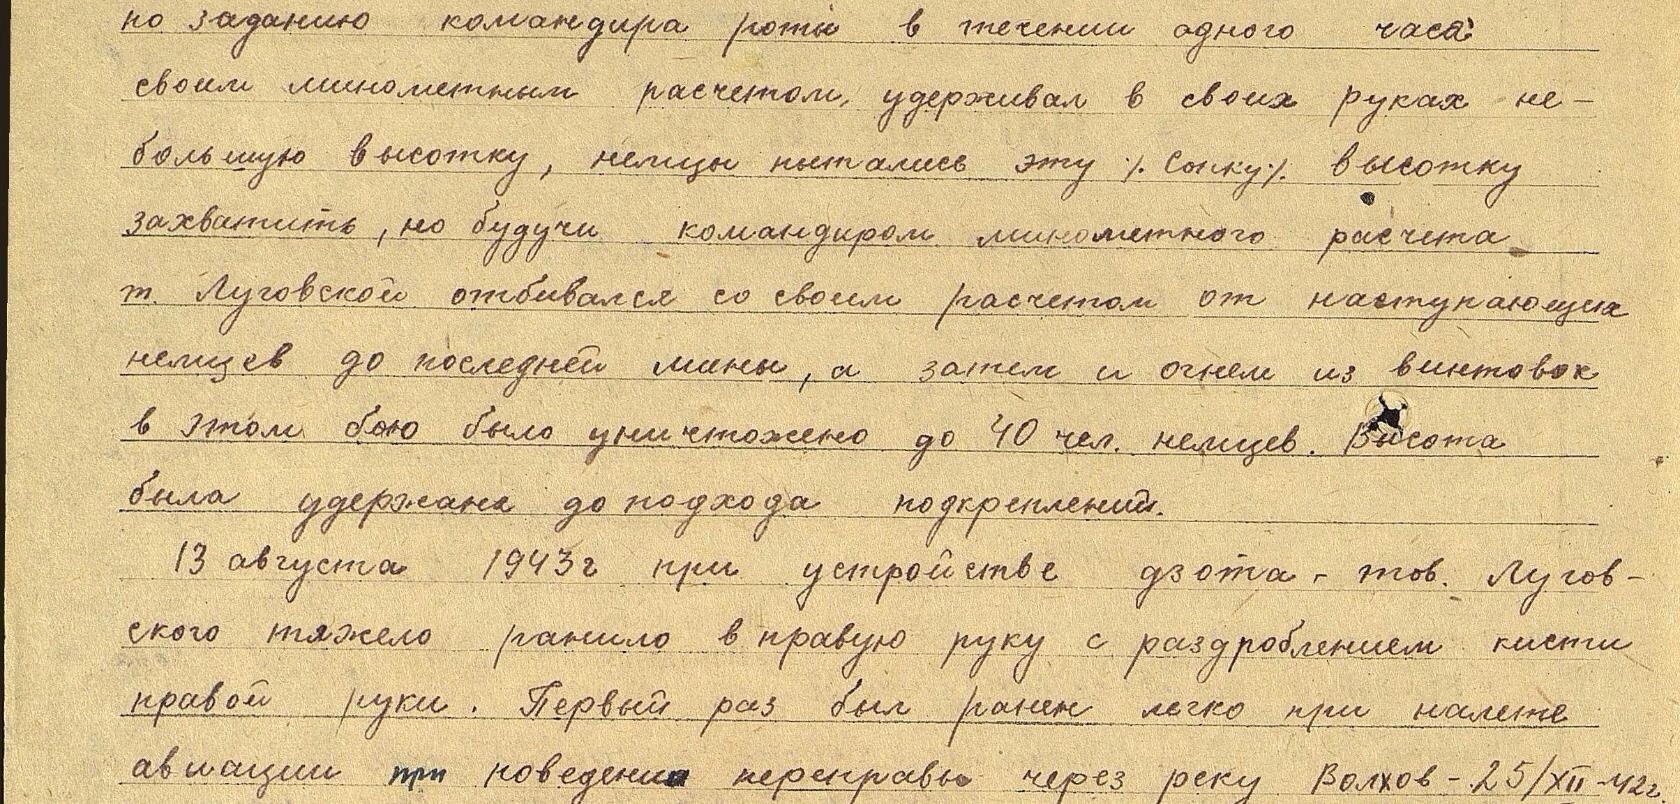 по заданию командира роты в течении одного часа
своим минометным расчетом, удерживал в своих руках не-
большую высотку, немцы пытались эту ./. Сопку ./. высотку
захватить, но будучи командиром минометного расчета
т. Луговской отбивался со своим расчетом от наступающих
немцев до последней мины, а затем и огнем из винтовок
в этом бою было уничтожено до 40 чел. немцев. Высота
была удержана до подхода подкреплений.
13 августа 1943г при устройстве дзота - тов. Лугов-
ского тяжело ранило в правую руку с раздроблением кисти
правой руки. Первый раз был ранен легко при налете
авиации при поведении переправы через реку Волхов - 25/XII-42г